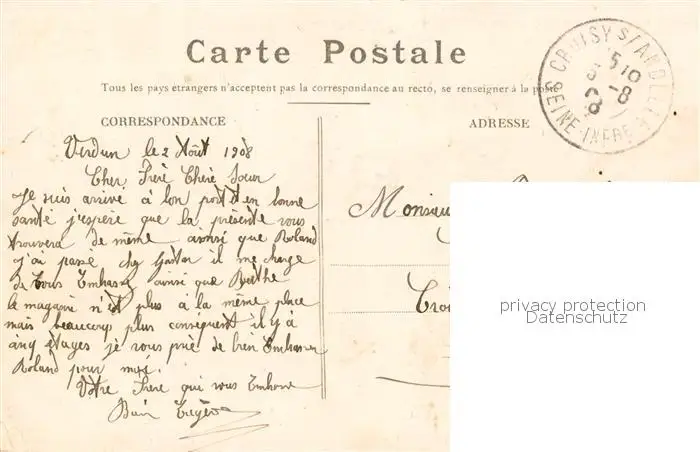 Carte Postale
Tous les pays etrangers n'acceptent pas la correspondance au recto, se renseigner à la poste
CORRESPONDANCE
ADRESSE
CROISY S/ANDELLE
SEINE-INFRE
5 10
-8
08
Verdun le 2 Août 1908
Cher Frère Chère Sœur
Je suis arrivé à bon port et en bonne
santé j'espère que la présente vous
trouvera de même ainsi que Roland
j'ai passé chez Gaston il me charge
de vous Embrassé ainsi que Berthe
le magasin n'est plus à la même place
mais beaucoup plus conséquent il y à
cinq étages je vous prie de bien Embrasser
Roland pour moi.
Votre Frère qui vous Embrasse
Bien
Monsieur
Croi
privacy protection
Datenschutz